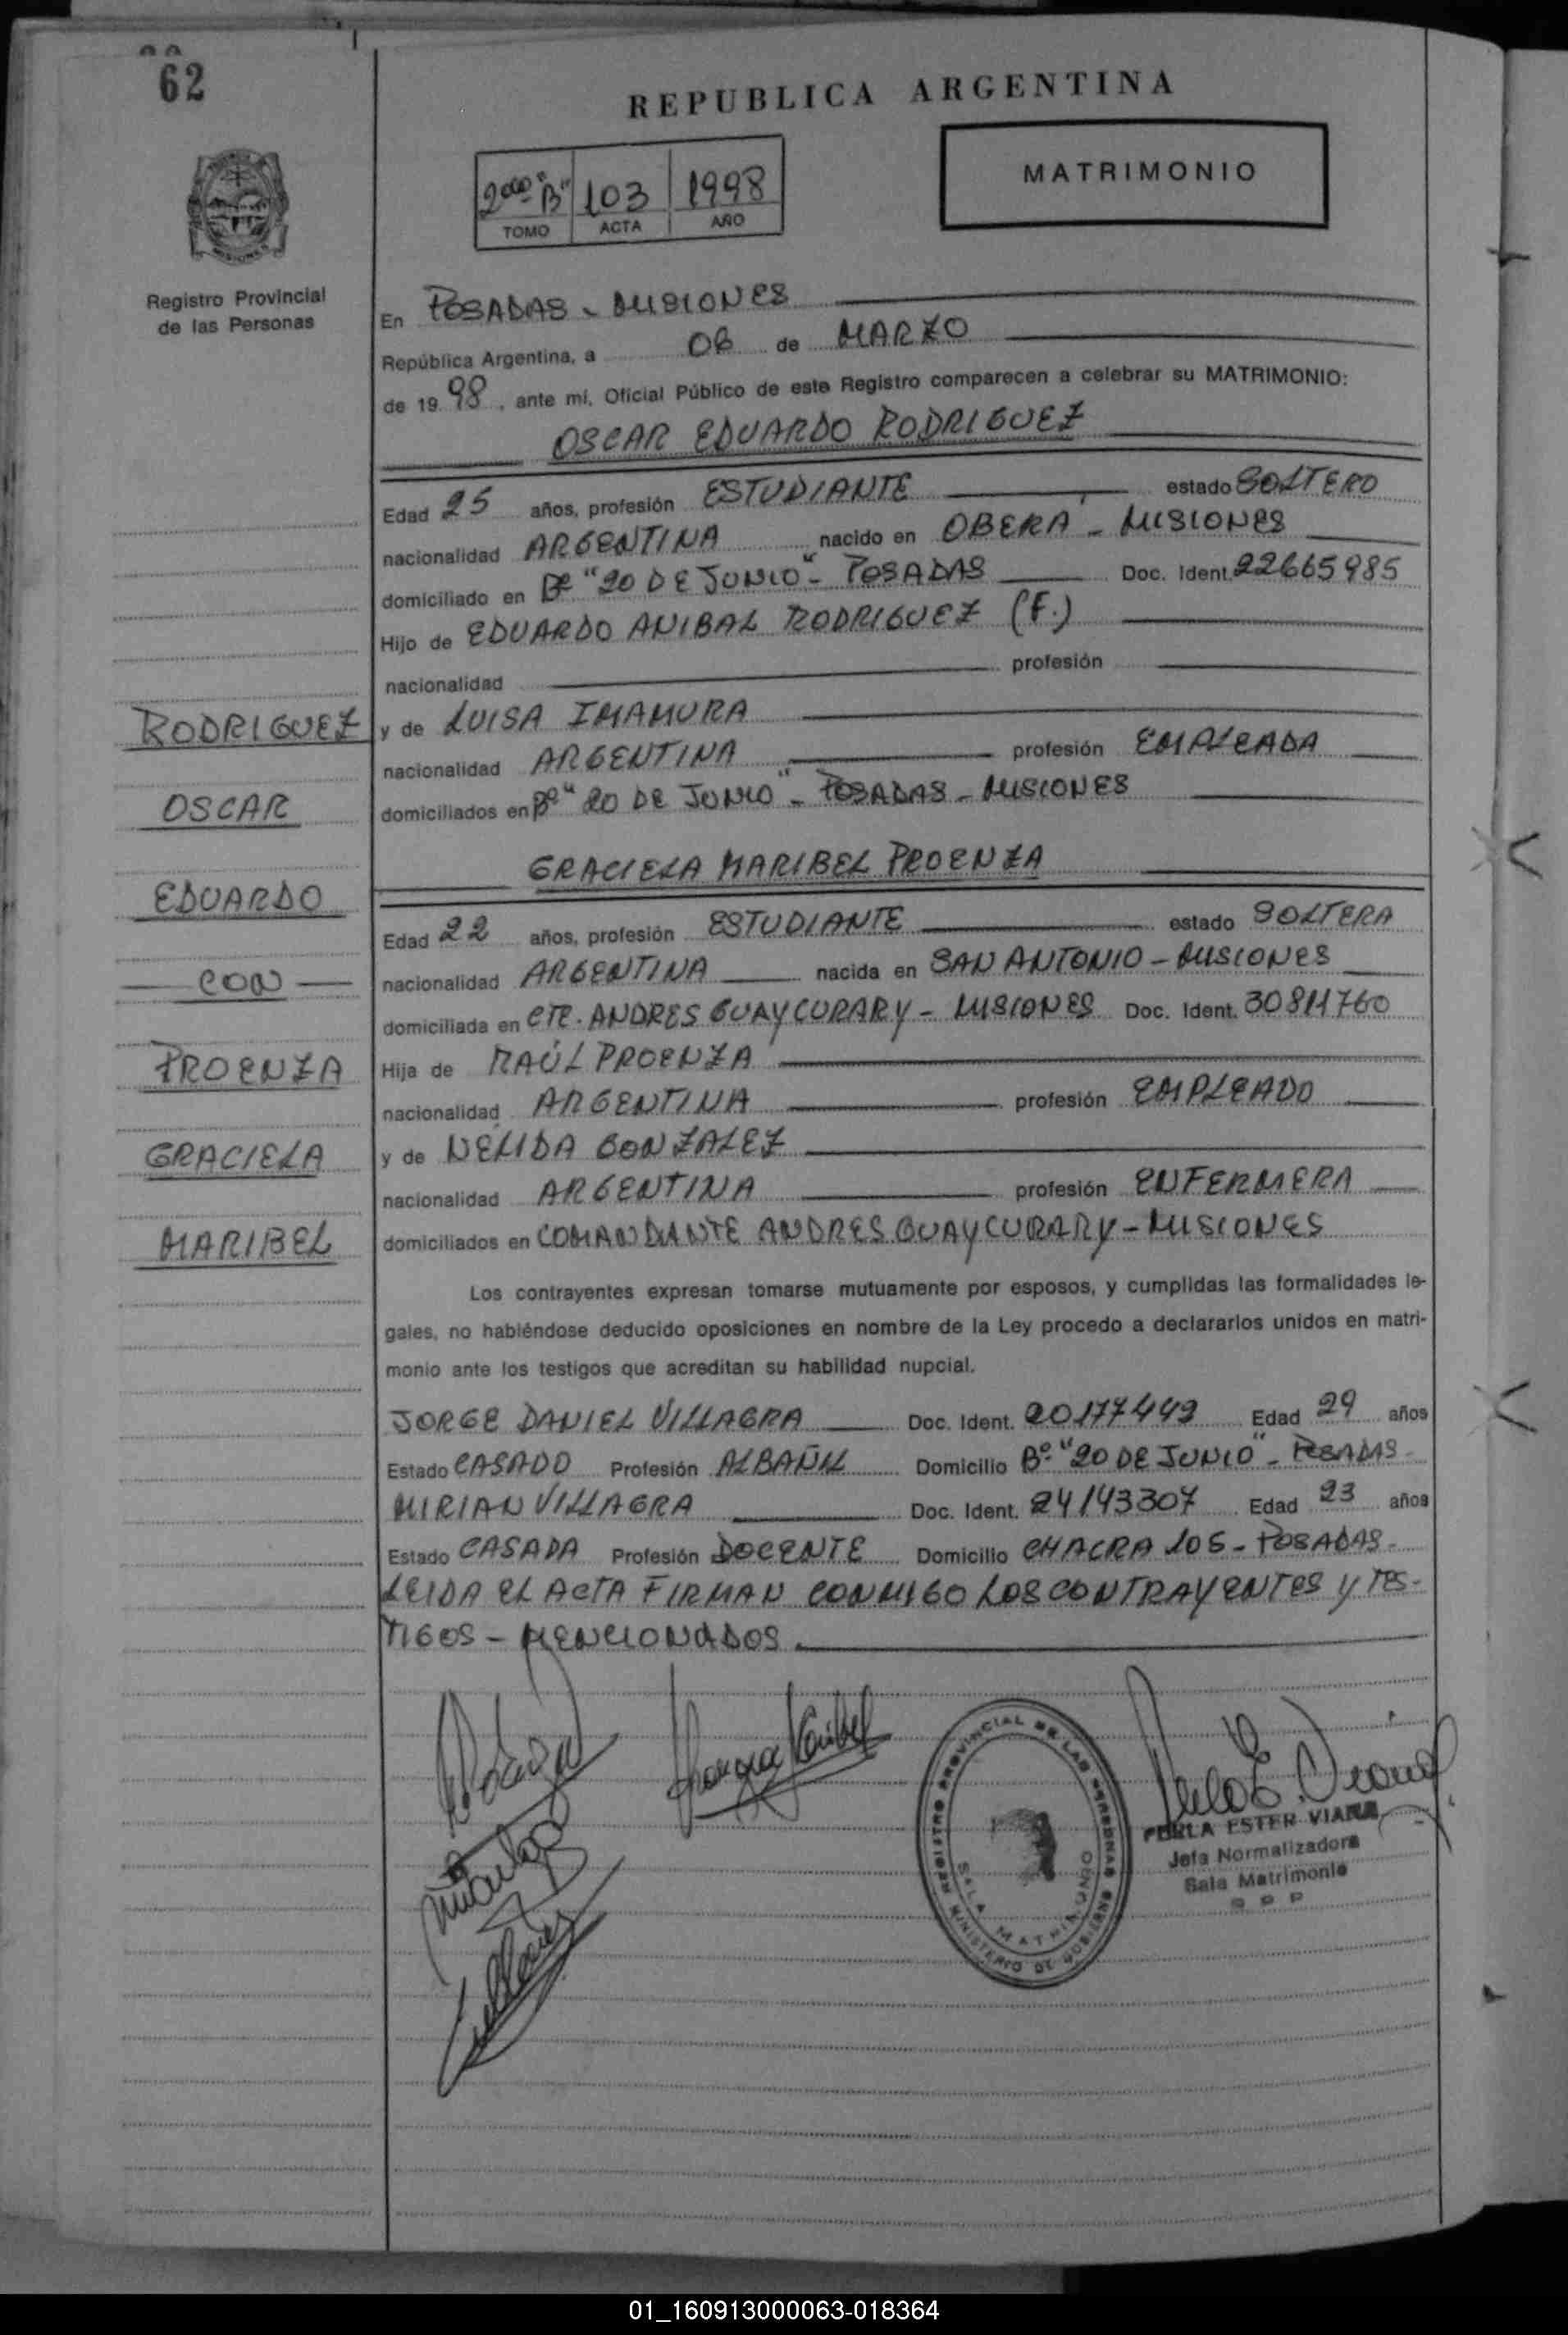 62
REPUBLICA ARGENTINA
MATRIMONIO
2do "B" 103 1998
TOMO ACTA AÑO
Registro Provincial
de las Personas
En POSADAS - MISIONES
República Argentina, a 06 de MARZO
de 19 98, ante mí, Oficial Público de este Registro comparecen a celebrar su MATRIMONIO:
OSCAR EDUARDO RODRIGUEZ
Edad 25 años, profesión ESTUDIANTE estado SOLTERO
nacionalidad ARGENTINA nacido en OBERÁ - MISIONES
domiciliado en Bº "20 DE JUNIO" - POSADAS Doc. Ident. 22665985
Hijo de EDUARDO ANIBAL RODRIGUEZ (F.)
nacionalidad profesión
y de LUISA IMAMURA
nacionalidad ARGENTINA profesión EMPLEADA
domiciliados en Bº "20 DE JUNIO" - POSADAS - MISIONES
GRACIELA MARIBEL PROENZA
Edad 22 años, profesión ESTUDIANTE estado SOLTERA
nacionalidad ARGENTINA nacida en SAN ANTONIO - MISIONES
domiciliada en CTE. ANDRES GUAYCURARY - MISIONES Doc. Ident. 30811760
Hija de RAÚL PROENZA
nacionalidad ARGENTINA profesión EMPLEADO
y de NELIDA GONZALEZ
nacionalidad ARGENTINA profesión ENFERMERA
domiciliados en COMANDANTE ANDRES GUAYCURARY - MISIONES
RODRIGUEZ
OSCAR
EDUARDO
CON
PROENZA
GRACIELA
MARIBEL
Los contrayentes expresan tomarse mutuamente por esposos, y cumplidas las formalidades le-
gales, no habiéndose deducido oposiciones en nombre de la Ley procedo a declararlos unidos en matri-
monio ante los testigos que acreditan su habilidad nupcial.
JORGE DANIEL VILLAGRA Doc. Ident. 20177449 Edad 29 años
Estado CASADO Profesión ALBAÑIL Domicilio Bº "20 DE JUNIO" - POSADAS -
MIRIAN VILLAGRA Doc. Ident. 24143307 Edad 23 años
Estado CASADA Profesión DOCENTE Domicilio CHACRA 105 - POSADAS -
LEIDA EL ACTA FIRMAN CONMIGO LOS CONTRAYENTES Y TES-
TIGOS - MENCIONADOS.
REGISTRO PROVINCIAL DE LAS PERSONAS
SALA MATRIMONIO
MINISTERIO DE GOBIERNO
PERLA ESTER VIANA
Jefa Normalizadora
Sala Matrimonio
01_160913000063-018364